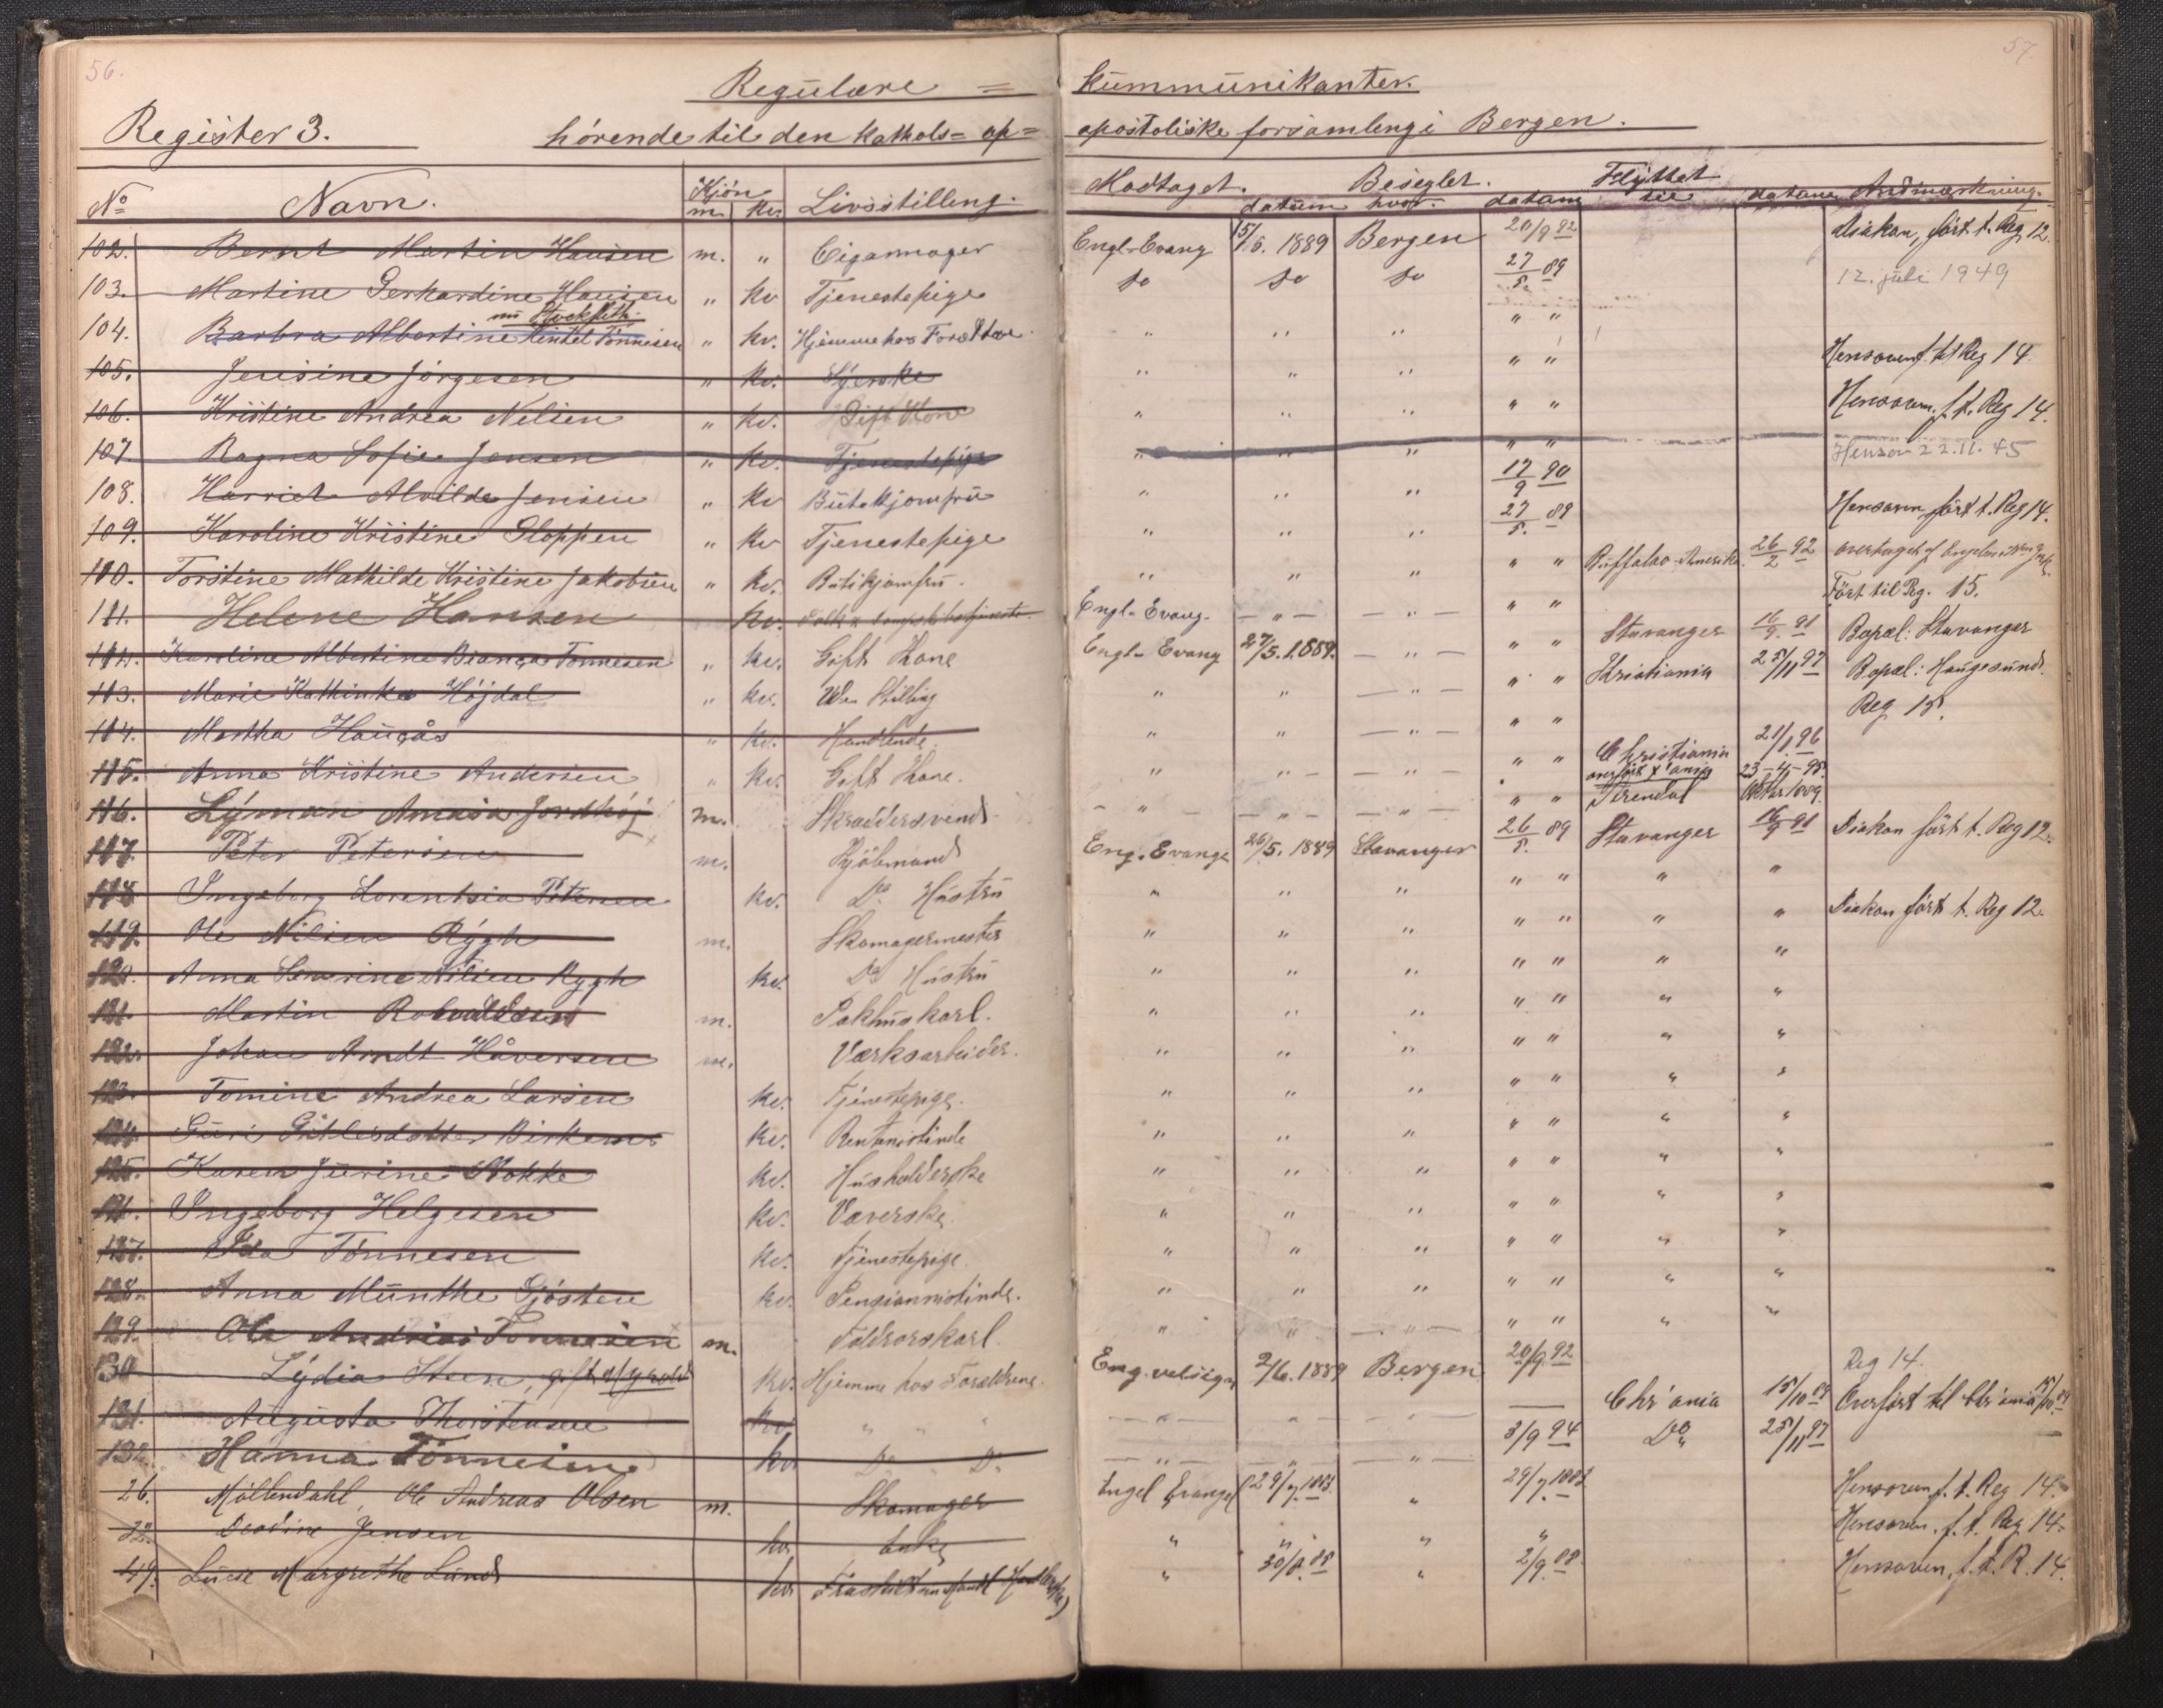 56.
57.
Regulære = Kummunikanter.
Register 3. hörende til den Kathols= ap= apostoliske forsamling i Bergen.
No Navn. Kjön m. kv. Livsstilling. Modtaget. datum Beseglet. hvor. datum Flyttet til datum Anmærkning.
102. Bernt Martin Hansen m. " Cigarmager Engl-Evang 5/5. 1889 Bergen 20/9 92 Diakon, fört t. Reg 12.
103. Martine Gerhardine Hansen " kv Tjenestepige do do do 27/5. 89 12. juli 1949
nu Stockfleth
104. Barbra Albertine Tönnesen " kv. Hjemme hos Foræld " " " " "
105. Jensine Jörgesen " kv. Syerske " " " " " Hensoven f. til Reg 14
106. Kristine Andrea Nelsen " kv. Gift Kone " " " " " Hensoven. f. t. Reg 14.
107. Ragna Sofie Jensen " kv. Tjenestepige " " " " " Hensov 22.11.45
108. Harriet Alvilde Jensen " kv Butikjomfru " " " 12/9 90
109. Karoline Kristine Gloppen " kv Tjenestepige " " " 27/5. 89 Hensoven fört t. Reg 14.
110. Torstine Mathilde Kristine Jakobsen " kv. Butikjomfru. " " " " " Buffalao-Amerika. 26/2 92 overtaget af Engelen
111. Helene Hansen kv. Engl-Evang. — " — — " — " " Fört til Reg. 15.
112. Karoline Albertine Bianca Tönnesen " kv. Gift Kone Engl-Evang 27/5. 1889. — " — " " Stavanger 16/9. 91 Bopæl: Stavanger
113. Marie Kathinka Höjdal " kv. Uden Stilling " " — " — " " Kristiania 25/11 97 Bopæl: Haugesund.
114. Martha Haugås " kv. Handlende " " — " — " " Reg 15.
115. Anna Kristine Andersen " kv. Gift Kone. " " — — " — " " Christiania 21/1. 96
overfört X'ania 23-4-95.
116. Lyman Amasa Jordhöj m. Skræddersvend — " — — " — — " — " " Arendal Oktbr 1889.
117. Peter Petersen m. Kjöbmand Eng. Evange 26/5. 1889 Stavanger 26/5. 89 Stavanger 16/9 91 Diakon fört t. Reg 12.
118 Ingeborg Lorentsia Petersen kv. Do Hustru " " " " " " "
119. Ole Nilsen Rygh m. Skomagermester " " " " " " " Diakon fört t. Reg 12.
120. Anna Severine Nilsen Rygh kv. Do Hustru " " " " " " "
121. Martin Rolvaldsen m. Pakhuskarl. " " " " " " "
122. Johan Arndt Håversen m. Værksarbeider. " " " " " " "
123. Tomine Andrea Larsen kv. Tjenestepige. " " " " " " "
124. Guri Gitlesdatter Birkemo kv. Rentenistinde " " " " " " "
125. Karen Jurine Stokke kv. Husholderske " " " " " " "
126. Ingeborg Helgesen kv. Væverske. " " " " " " "
127. Ida Tönnesen kv. Tjenestepige. " " " " " " "
128. Anna Munthe Gjösten kv. Pensionnistinde. " " " " " " "
129. Ole Andreas Tönnesen m. " " — " — " " " "
130 Lydia Steen, gift kv. Hjemme hos Forældrene. Eng. velsign 2/6. 1889 Bergen 20/9. 92 Reg 14.
131. Augusta Thorstensen kv. " " " — " — — " — — " — — Chr'ania 15/10 89 Overfört til Chr'ania 15/10 89
132. Hanna Tönnesen kv. Do Do — " — — " — — " — 3/9 94 Do 25/11 97
26. Möllendahl, Ole Andreas Olsen m. Skomager Engel Evangel 29/7. 1883. " 29/7. 1883 Hensoven f. t. Reg 14.
32. Jensen kv. Enke " " " " Hensoven. f. t. Reg 14.
49. Lucie Margrethe Lund kv. " 30/8. 85 " 2/9. 88. Hensoven. f. t. R. 14.